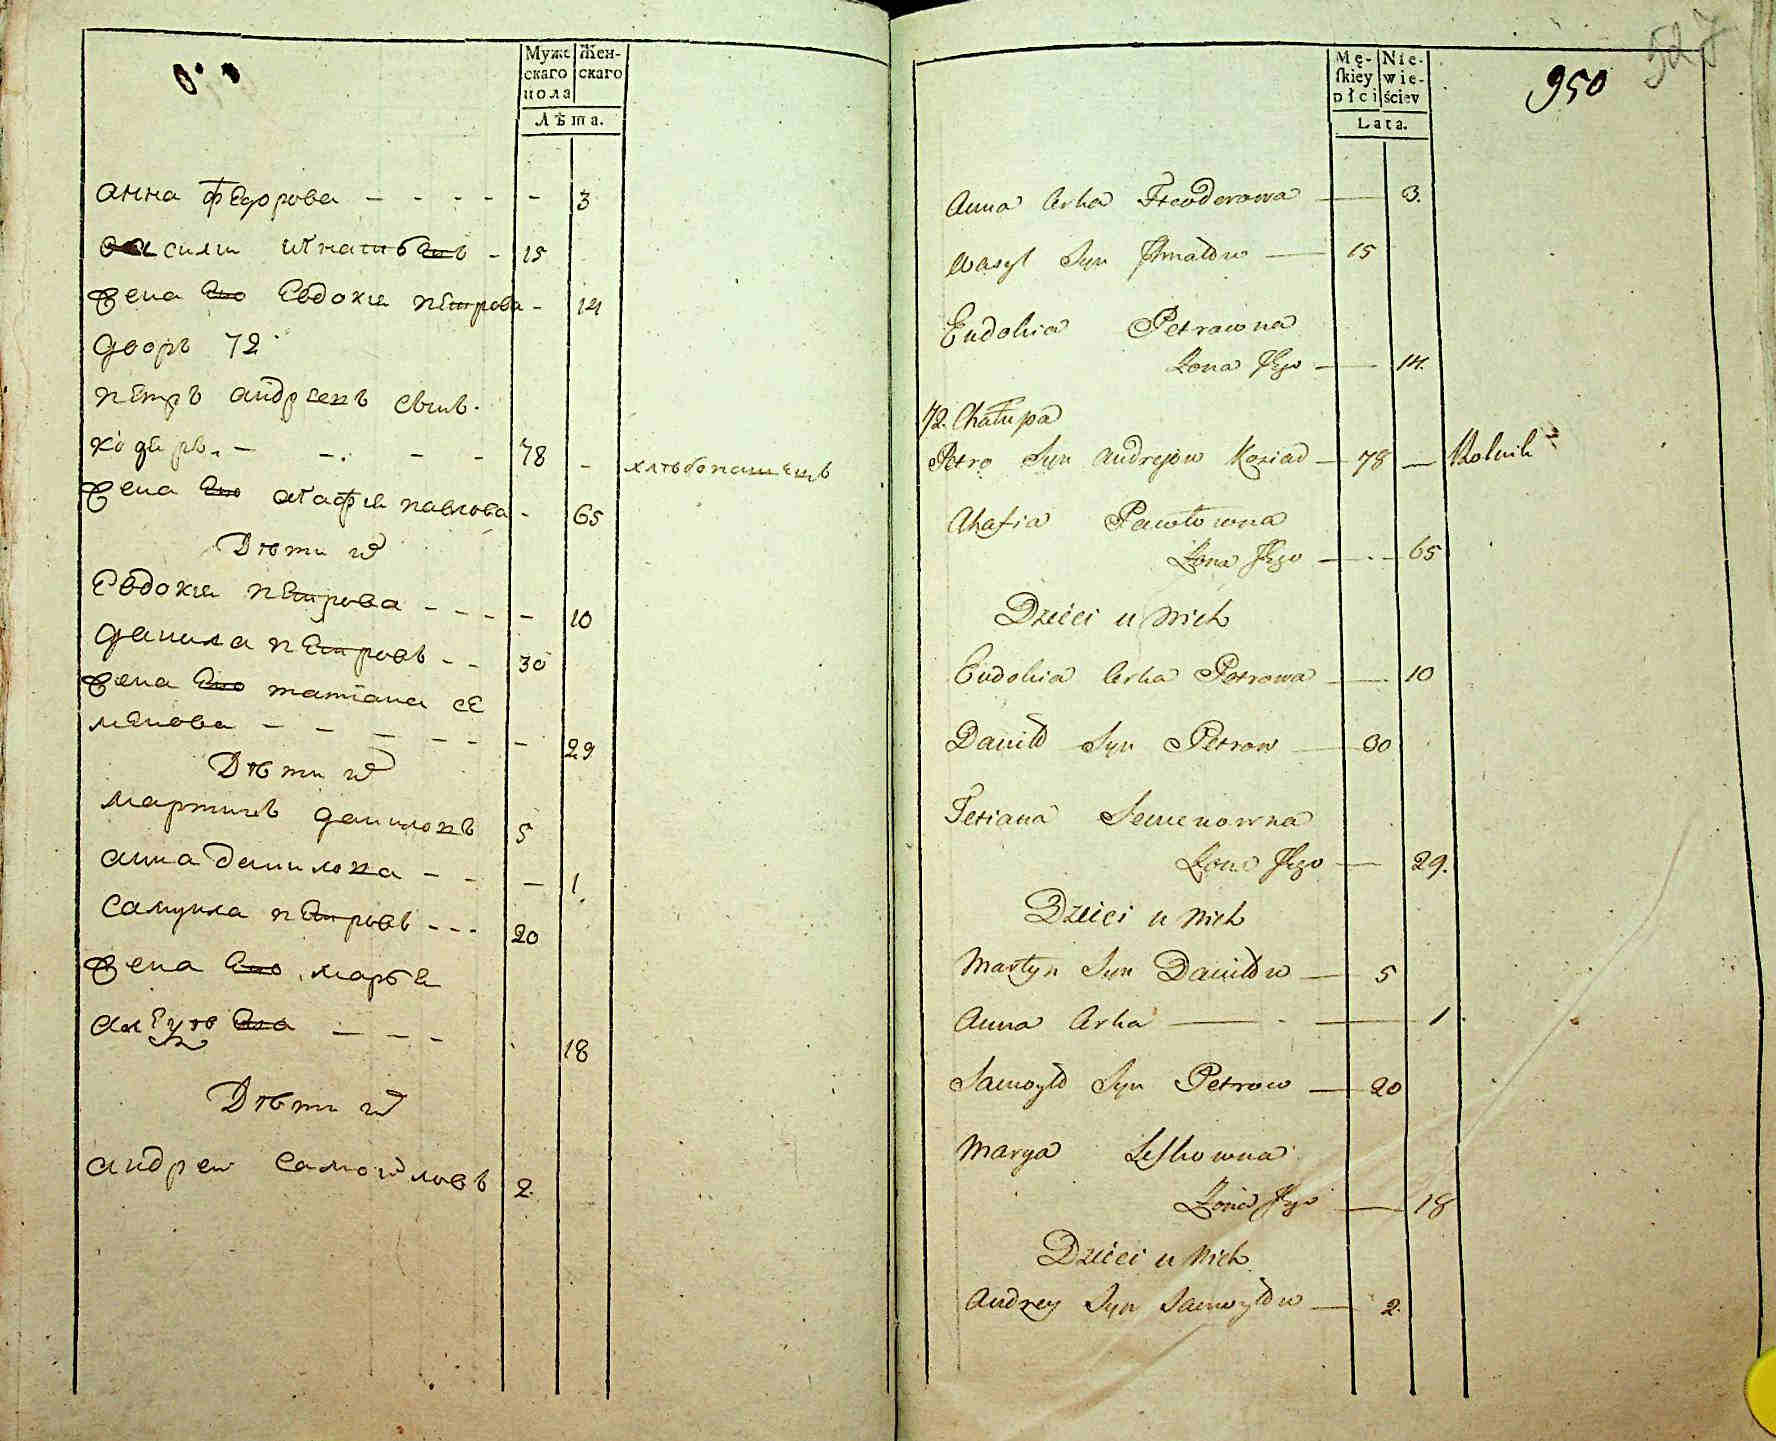 Муже
скаго
пола
Жен-
скаго
Лѣта.
анна федорова - - - - - 3
васили игнатьевъ - 15
жена ево евдокия петрова - 14
дворъ 72
петръ андреевъ
78 - хлѣбопашецъ
жена ево агафия павлова - 65
Дѣти их
евдокия петрова - - - - 10
данила петровъ - - 30
жена ево татиана се
менова - - - - - - - 29
Дѣти их
мартинъ даниловъ 5
анна данилова - - - 1.
самуила петровъ - - - 20
жена ево марья
- - - 18
Дѣти их
андреи самоиловъ 2.
Mę-
skiey
płci
Nie-
wie-
ściey
Lata.
950
527
Anna Crka Fteoderowa — 3.
Wasyl Syn Ihnatow — 15
Eudokia Petrowna
Zona Jego — 14.
72. Chałupa
Petro Syn Andrejow Koziad — 78 — Rolnik
Ahafia Pawłowna
Zona Jego — 65
Dzieci u Nich
Eudokia Crka Petrowa — 10
Daniło Syn Petrow — 30
Tetiana Semenowna
Zona Jego — 29.
Dzieci u Nich
Martyn Syn Daniłow — 5
Anna Crka — 1.
Samoyło Syn Petrow — 20
Marya Leskowna
Zona Jego — 18
Dzieci u Nich
Andrey Syn Samoyłow — 2.